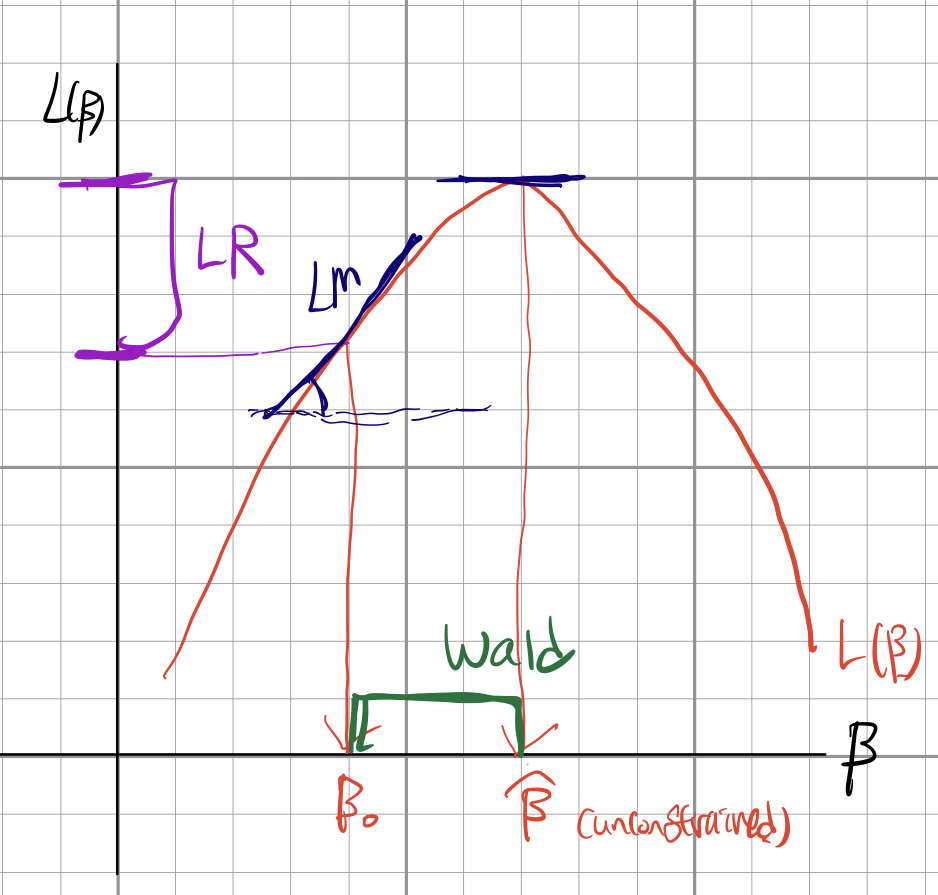 L(β)
LR
LM
Wald
L(β)
β
β₀
β̂ (unconstrained)